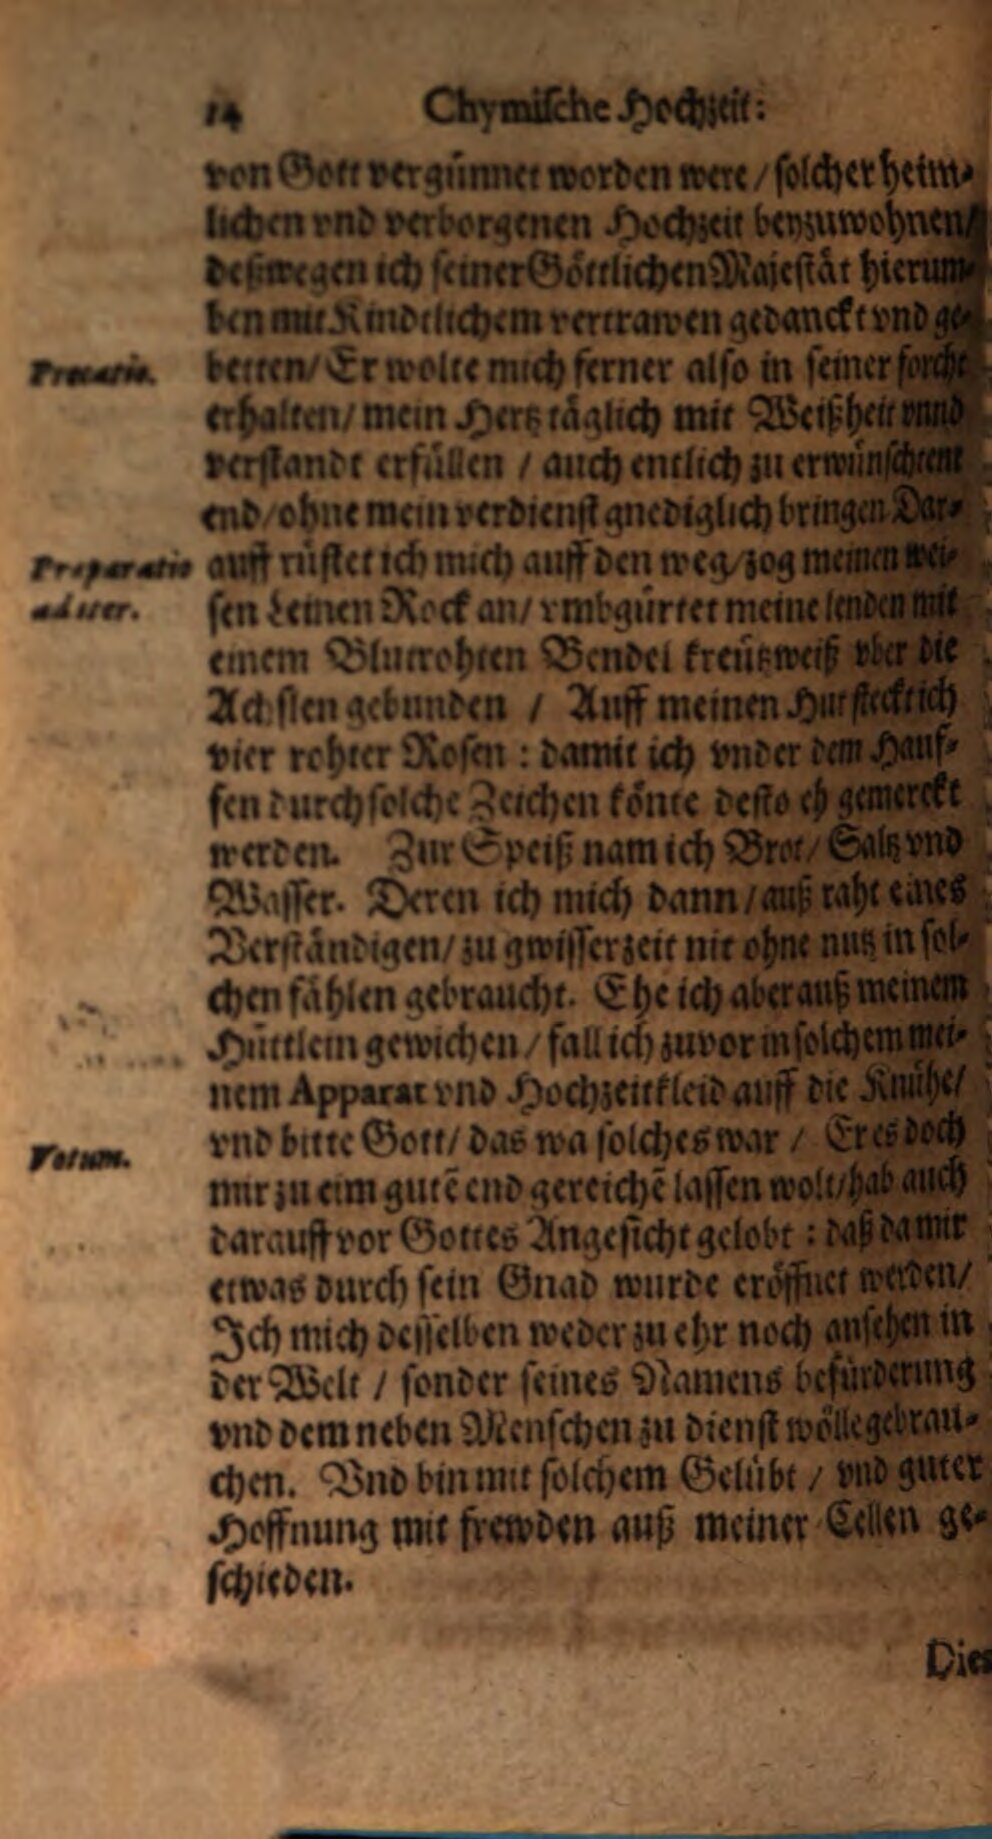 14 Chymische Hochzeit:
von Gott vergünnet worden were / solcher heim-
lichen vnd verborgenen Hochzeit beyzuwohnen/
deßwegen ich seiner Göttlichen Majestät hierum-
ben mit Kindtlichem vertrawen gedanckt vnd ge-
Precatio.
betten/ Er wolte mich ferner also in seiner forcht
erhalten/ mein Hertz täglich mit Weißheit vnnd
verstandt erfüllen / auch entlich zu erwünschtent
end/ohne mein verdienst gnediglich bringen Dar-
Preparatio
auff rüstet ich mich auff den weg/zog meinen wei-
ad iter.
sen Leinen Rock an/ vmbgürtet meine lenden mit
einem Blutrohten Bendel kreützweiß vber die
Achslen gebunden / Auff meinen Hut steckt ich
vier rohter Rosen : damit ich vnder dem Hauf-
fen durch solche Zeichen könte desto eh gemerckt
werden. Zur Speiß nam ich Brot/ Saltz vnd
Wasser. Deren ich mich dann / auß raht eines
Verständigen/ zu gwisser zeit nit ohne nutz in sol-
chen fählen gebraucht. Ehe ich aber auß meinem
Hüttlein gewichen / fall ich zuvor in solchem mei-
nem Apparat vnd Hochzeitkleid auff die Knühe/
Votum.
vnd bitte Gott/ das wa solches war / Er es doch
mir zu eim gutē end gereichē lassen wolt/hab auch
darauff vor Gottes Angesicht gelobt : daß da mir
etwas durch sein Gnad wurde eröffnet werden/
Ich mich desselben weder zu ehr noch ansehen in
der Welt / sonder seines Namens befürderung
vnd dem neben Menschen zu dienst wölle gebrau-
chen. Vnd bin mit solchem Gelübt / vnd guter
Hoffnung mit frewden auß meiner Cellen ge-
schieden.
Dies